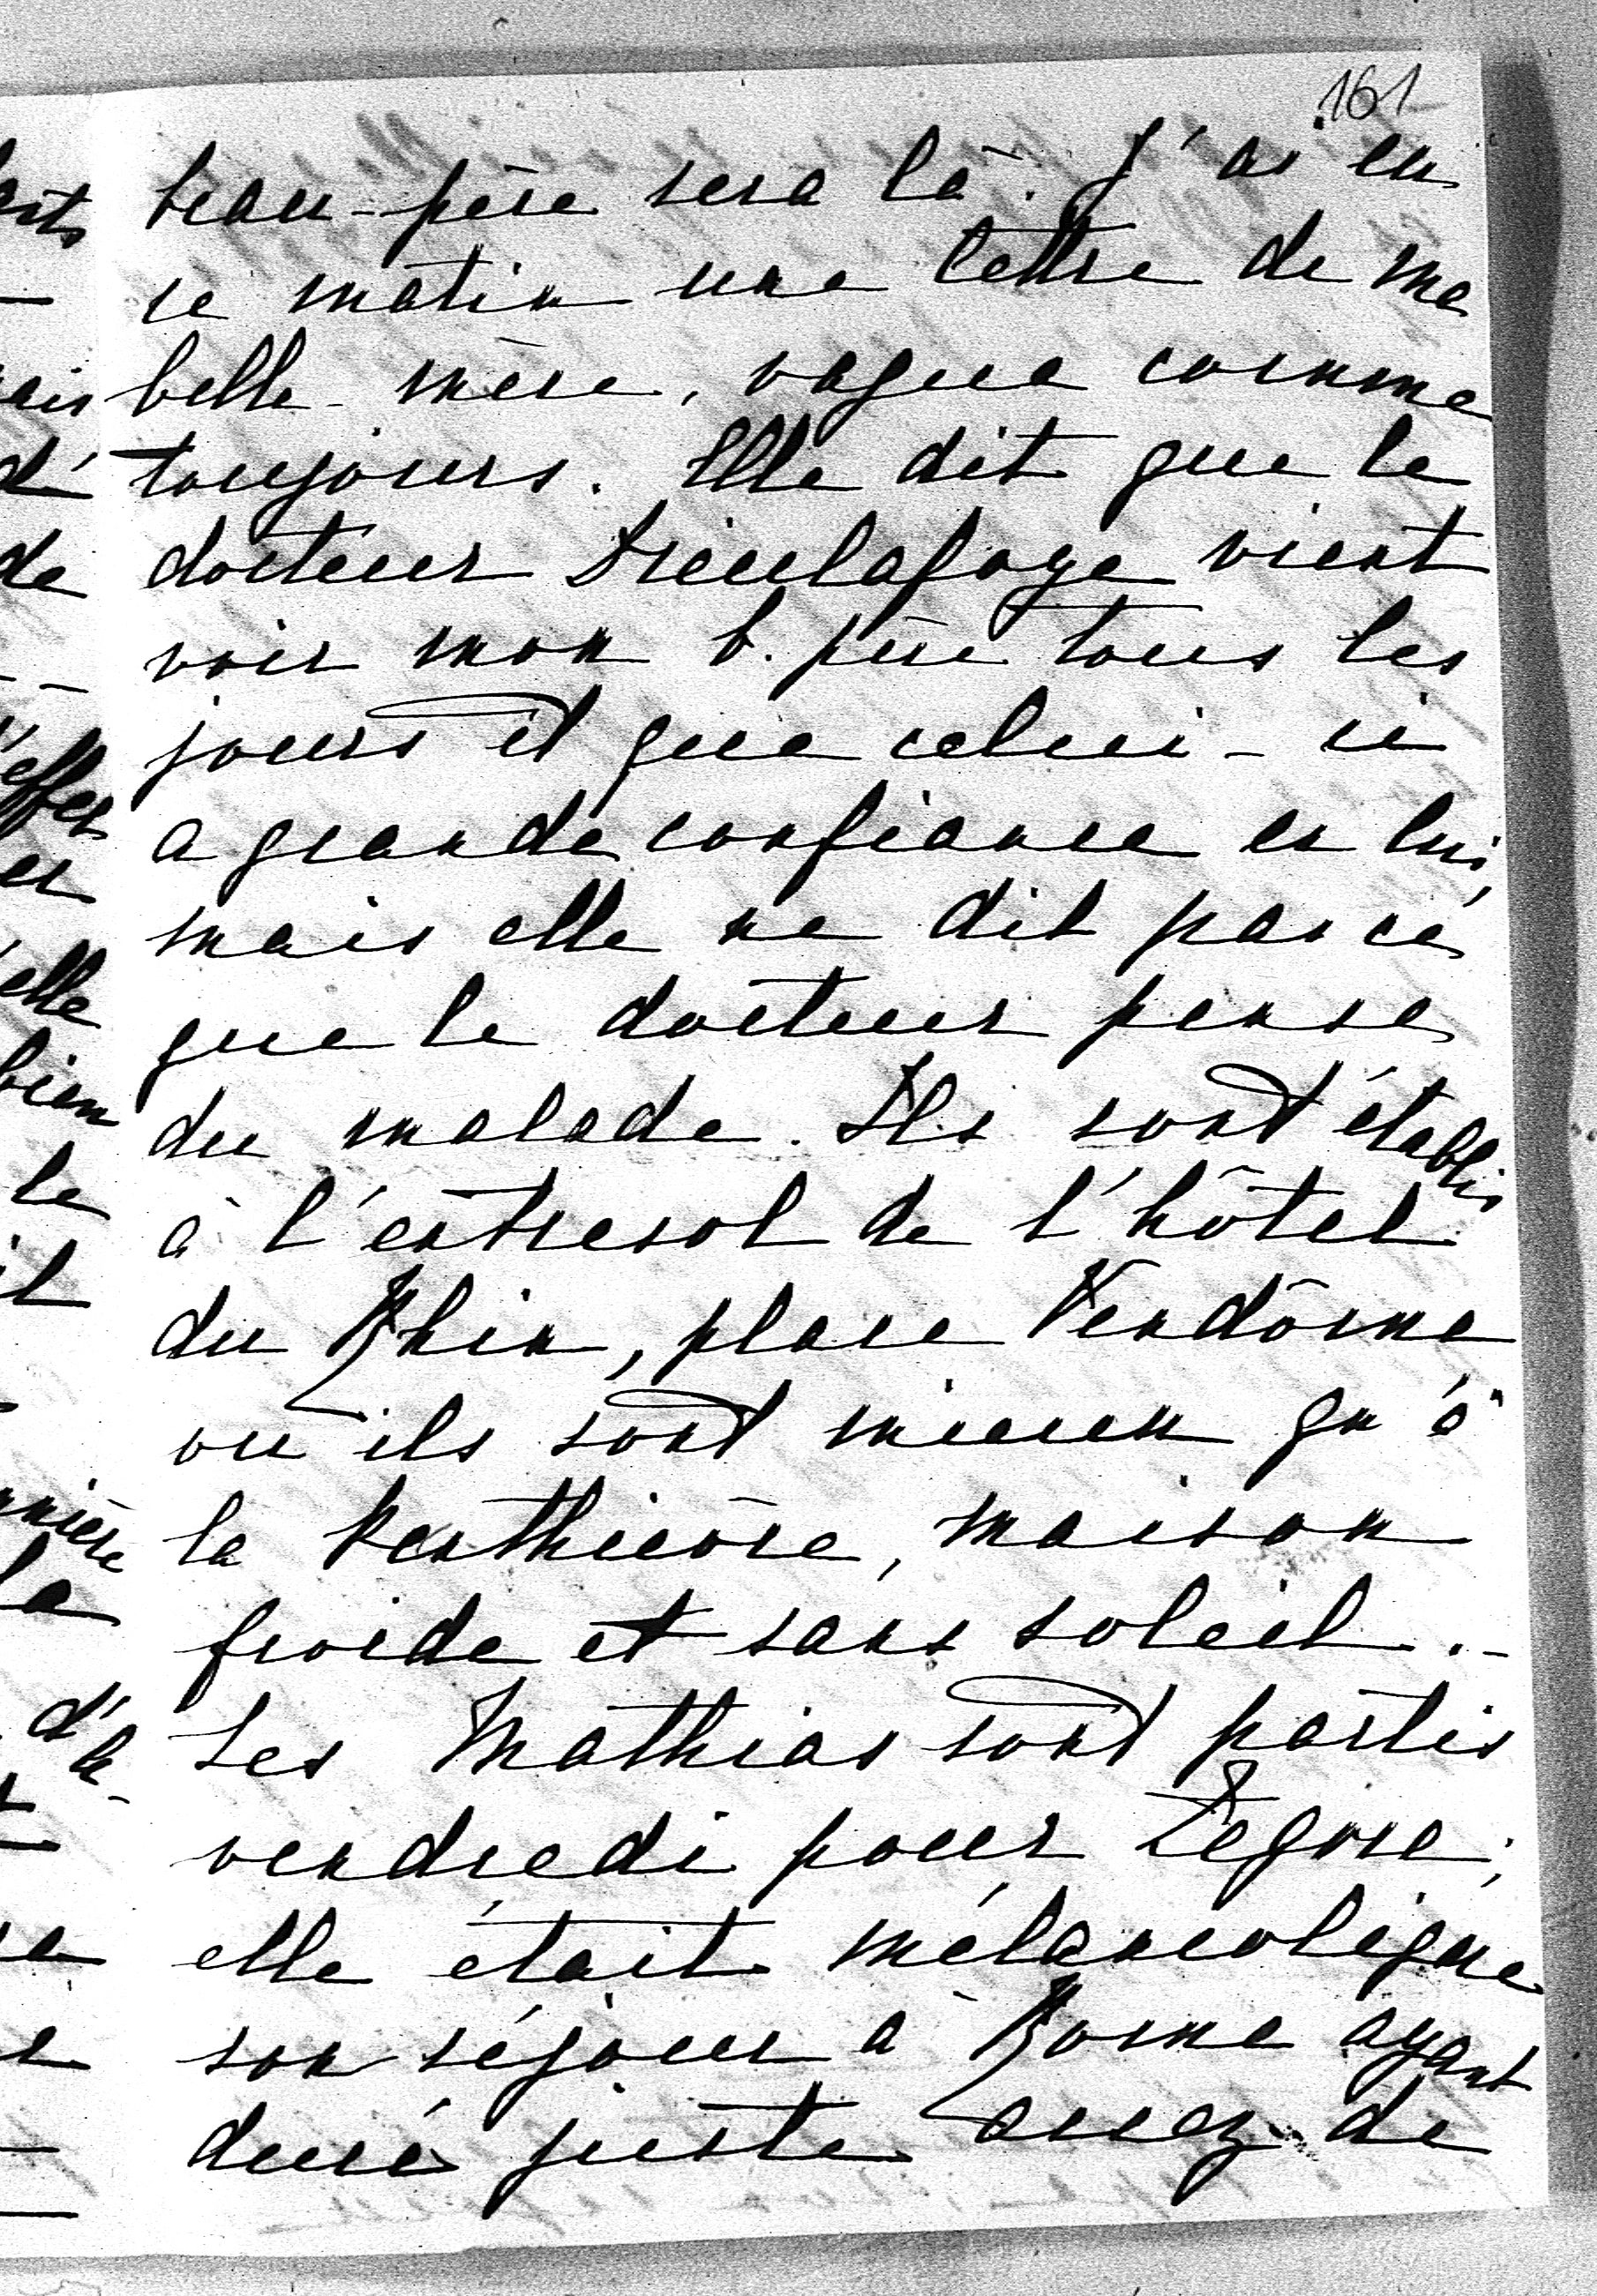 161
beau-père sera là. J'ai eu
ce matin une lettre de ma
belle-mère, vague comme
toujours. Elle dit que le
docteur Dieulafoye vient
voir mon b. père tous les
jours et que celui-ci
a grande confiance en lui,
mais elle ne dit pas ce
que le docteur pense
du malade. Ils sont établis
à l'entresol de l'hôtel
du Rhin, place Vendôme
où ils sont mieux qu'à
la Penthièvre, maison
froide et sans soleil.-
Les Mathias sont partis
vendredi pour Légore;
elle était mélancolique
son séjour à Rome ayant
duré juste assez de